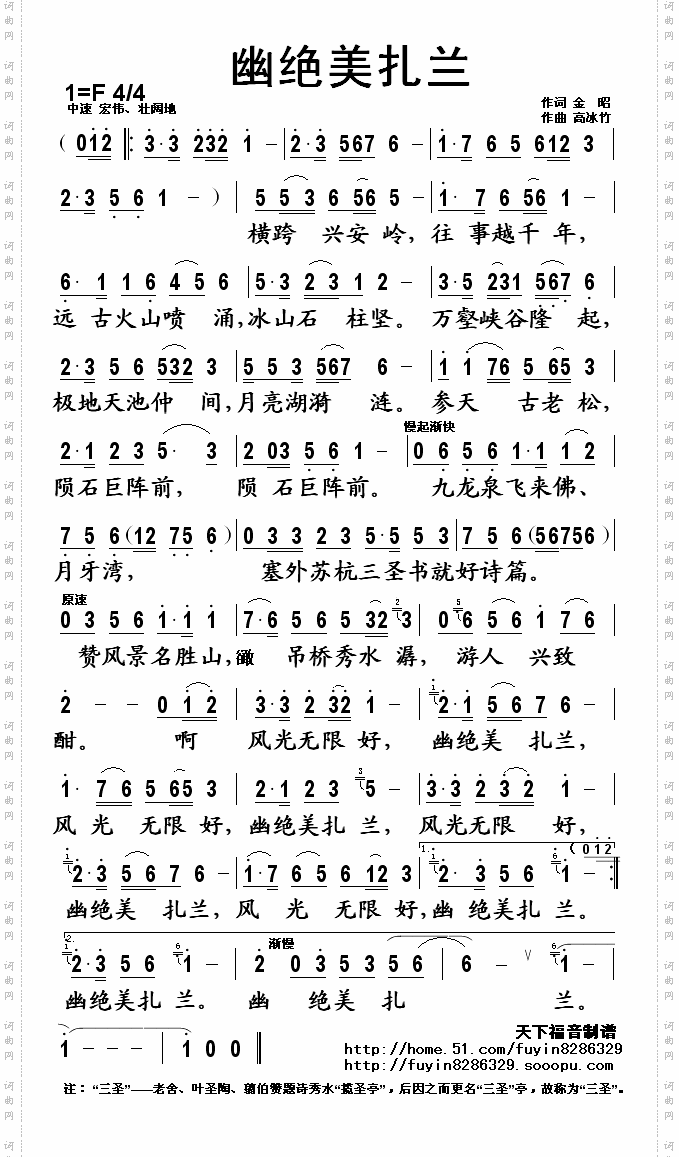 幽绝美扎兰
1=F 4/4
中速 宏伟、壮阔地
作词 金 昭
作曲 高冰竹
( 0 1 2 ‖: 3 · 3 2 3 2 1 - | 2 · 3 5 6 7 6 - | 1 · 7 6 5 6 1 2 3 |
2 · 3 5 6 1 - ) | 5 5 3 6 5 6 5 - | 1 · 7 6 5 6 1 - |
横跨 兴安 岭, 往 事越千 年,
6 · 1 1 6 4 5 6 | 5 · 3 2 3 1 2 - | 3 · 5 2 3 1 5 6 7 6 |
远 古火山喷 涌,冰山石 柱坚。 万壑峡谷隆 起,
2 · 3 5 6 5 3 2 3 | 5 5 3 5 6 7 6 - | 1 1 7 6 5 6 5 3 |
极地天池仲 间,月亮湖漪 涟。 参天 古老 松,
慢起渐快
2 · 1 2 3 5 · 3 | 2 0 3 5 6 1 - | 0 6 5 6 1 · 1 1 2 |
陨石巨阵前, 陨 石巨阵前。 九龙泉飞来佛、
7 5 6 ( 1 2 7 5 6 ) | 0 3 3 2 3 5 · 5 5 3 | 7 5 6 ( 5 6 7 5 6 ) |
月牙湾, 塞外苏杭三圣书就好诗篇。
原速
0 3 5 6 1 · 1 1 | 7 · 6 5 6 5 3 2 2 3 | 0 6 5 5 6 1 7 6 |
赞风景名胜山, 吊桥秀水 潺, 游人 兴致
2 - - 0 1 2 | 3 · 3 2 3 2 1 - | 1 2 · 1 5 6 7 6 - |
酣。 啊 风光无限 好, 幽绝美 扎兰,
1 · 7 6 5 6 5 3 | 2 · 1 2 3 3 5 - | 3 · 3 2 3 2 1 - |
风 光 无限 好,幽绝美扎 兰, 风光无限 好,
1 2 · 3 5 6 7 6 - | 1 · 7 6 5 6 1 2 3 | 1. 1 2 · 3 5 6 6 1 - ( 0 1 2 :‖
幽绝美 扎兰,风 光 无限 好,幽 绝美扎 兰。
2. 1 2 · 3 5 6 6 1 - | 渐慢 2 0 3 5 3 5 5 6 | 6 - ∨ 6 1 - |
幽绝美扎 兰。 幽 绝美 扎 兰。
1 - - - | 1 0 0 ‖
天下福音制谱
http://home.51.com/fuyin8286329
http://fuyin8286329.sooopu.com
注：“三圣”——老舍、叶圣陶、翦伯赞题诗秀水“揽圣亭”，后因之而更名“三圣”亭，故称为“三圣”。
词曲网